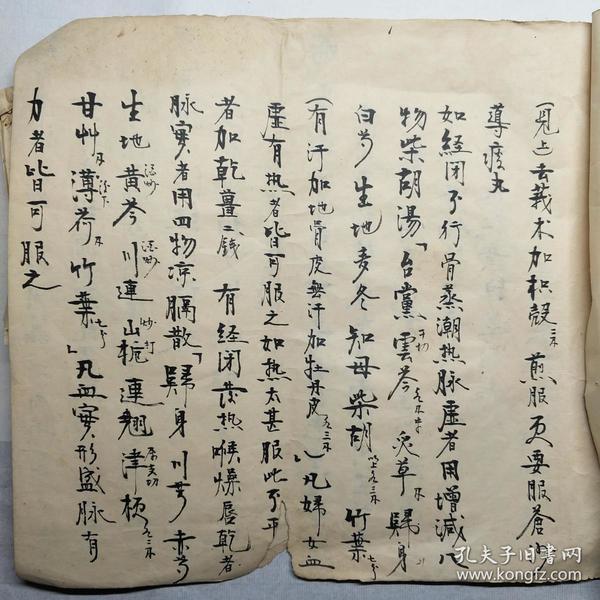 見上去莪朮加枳殼 煎服更要服蒼附
導痰丸
如經閉不行骨蒸潮熱脉虛者用增減八
物柴胡湯「台黨雲苓 炙草 歸身
白芍生地麥冬知母柴胡 竹葉
有汗加地骨皮無汗加牡丹皮」凡婦女血
虛有熱者皆可服之如熱太甚服此不平
者加乾薑二錢 有經閉發熱喉燥唇乾者
脉實者用四物凉膈散「歸身川芎赤芍
生地黃芩川連山梔連翹津梗
甘艸薄荷竹葉」凡血實形盛脉有
力者皆可服之
孔夫子旧書网
www.kongfz.com